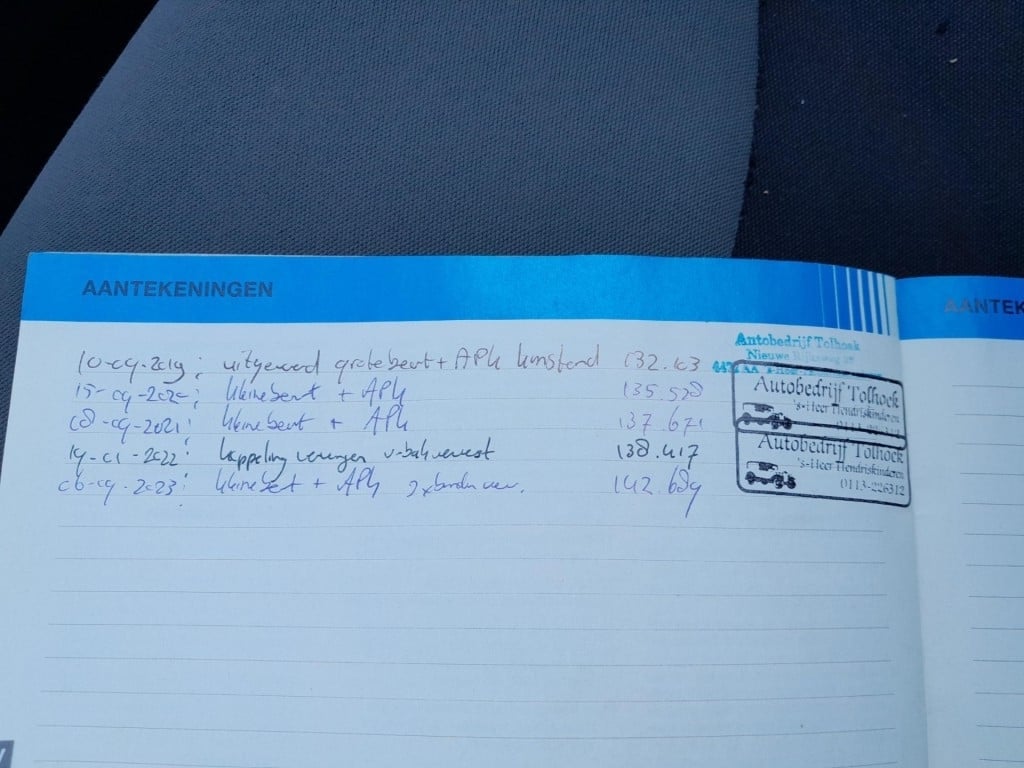 AANTEKENINGEN
AANTEK
10-09-2019: uitgevoerd grote beurt + APK kmstand 132.103
Autobedrijf Tolhoek
Nieuwe
15-09-2020: kleine beurt + APK 135.528
Autobedrijf Tolhoek
's-Heer Hendrikskinderen
08-09-2021: kleine beurt + APK 137.671
19-01-2022: koppeling vervangen 138.417
Autobedrijf Tolhoek
's-Heer Hendrikskinderen
0113-226312
06-09-2023: kleine beurt + APK 2x banden ver. 142.689